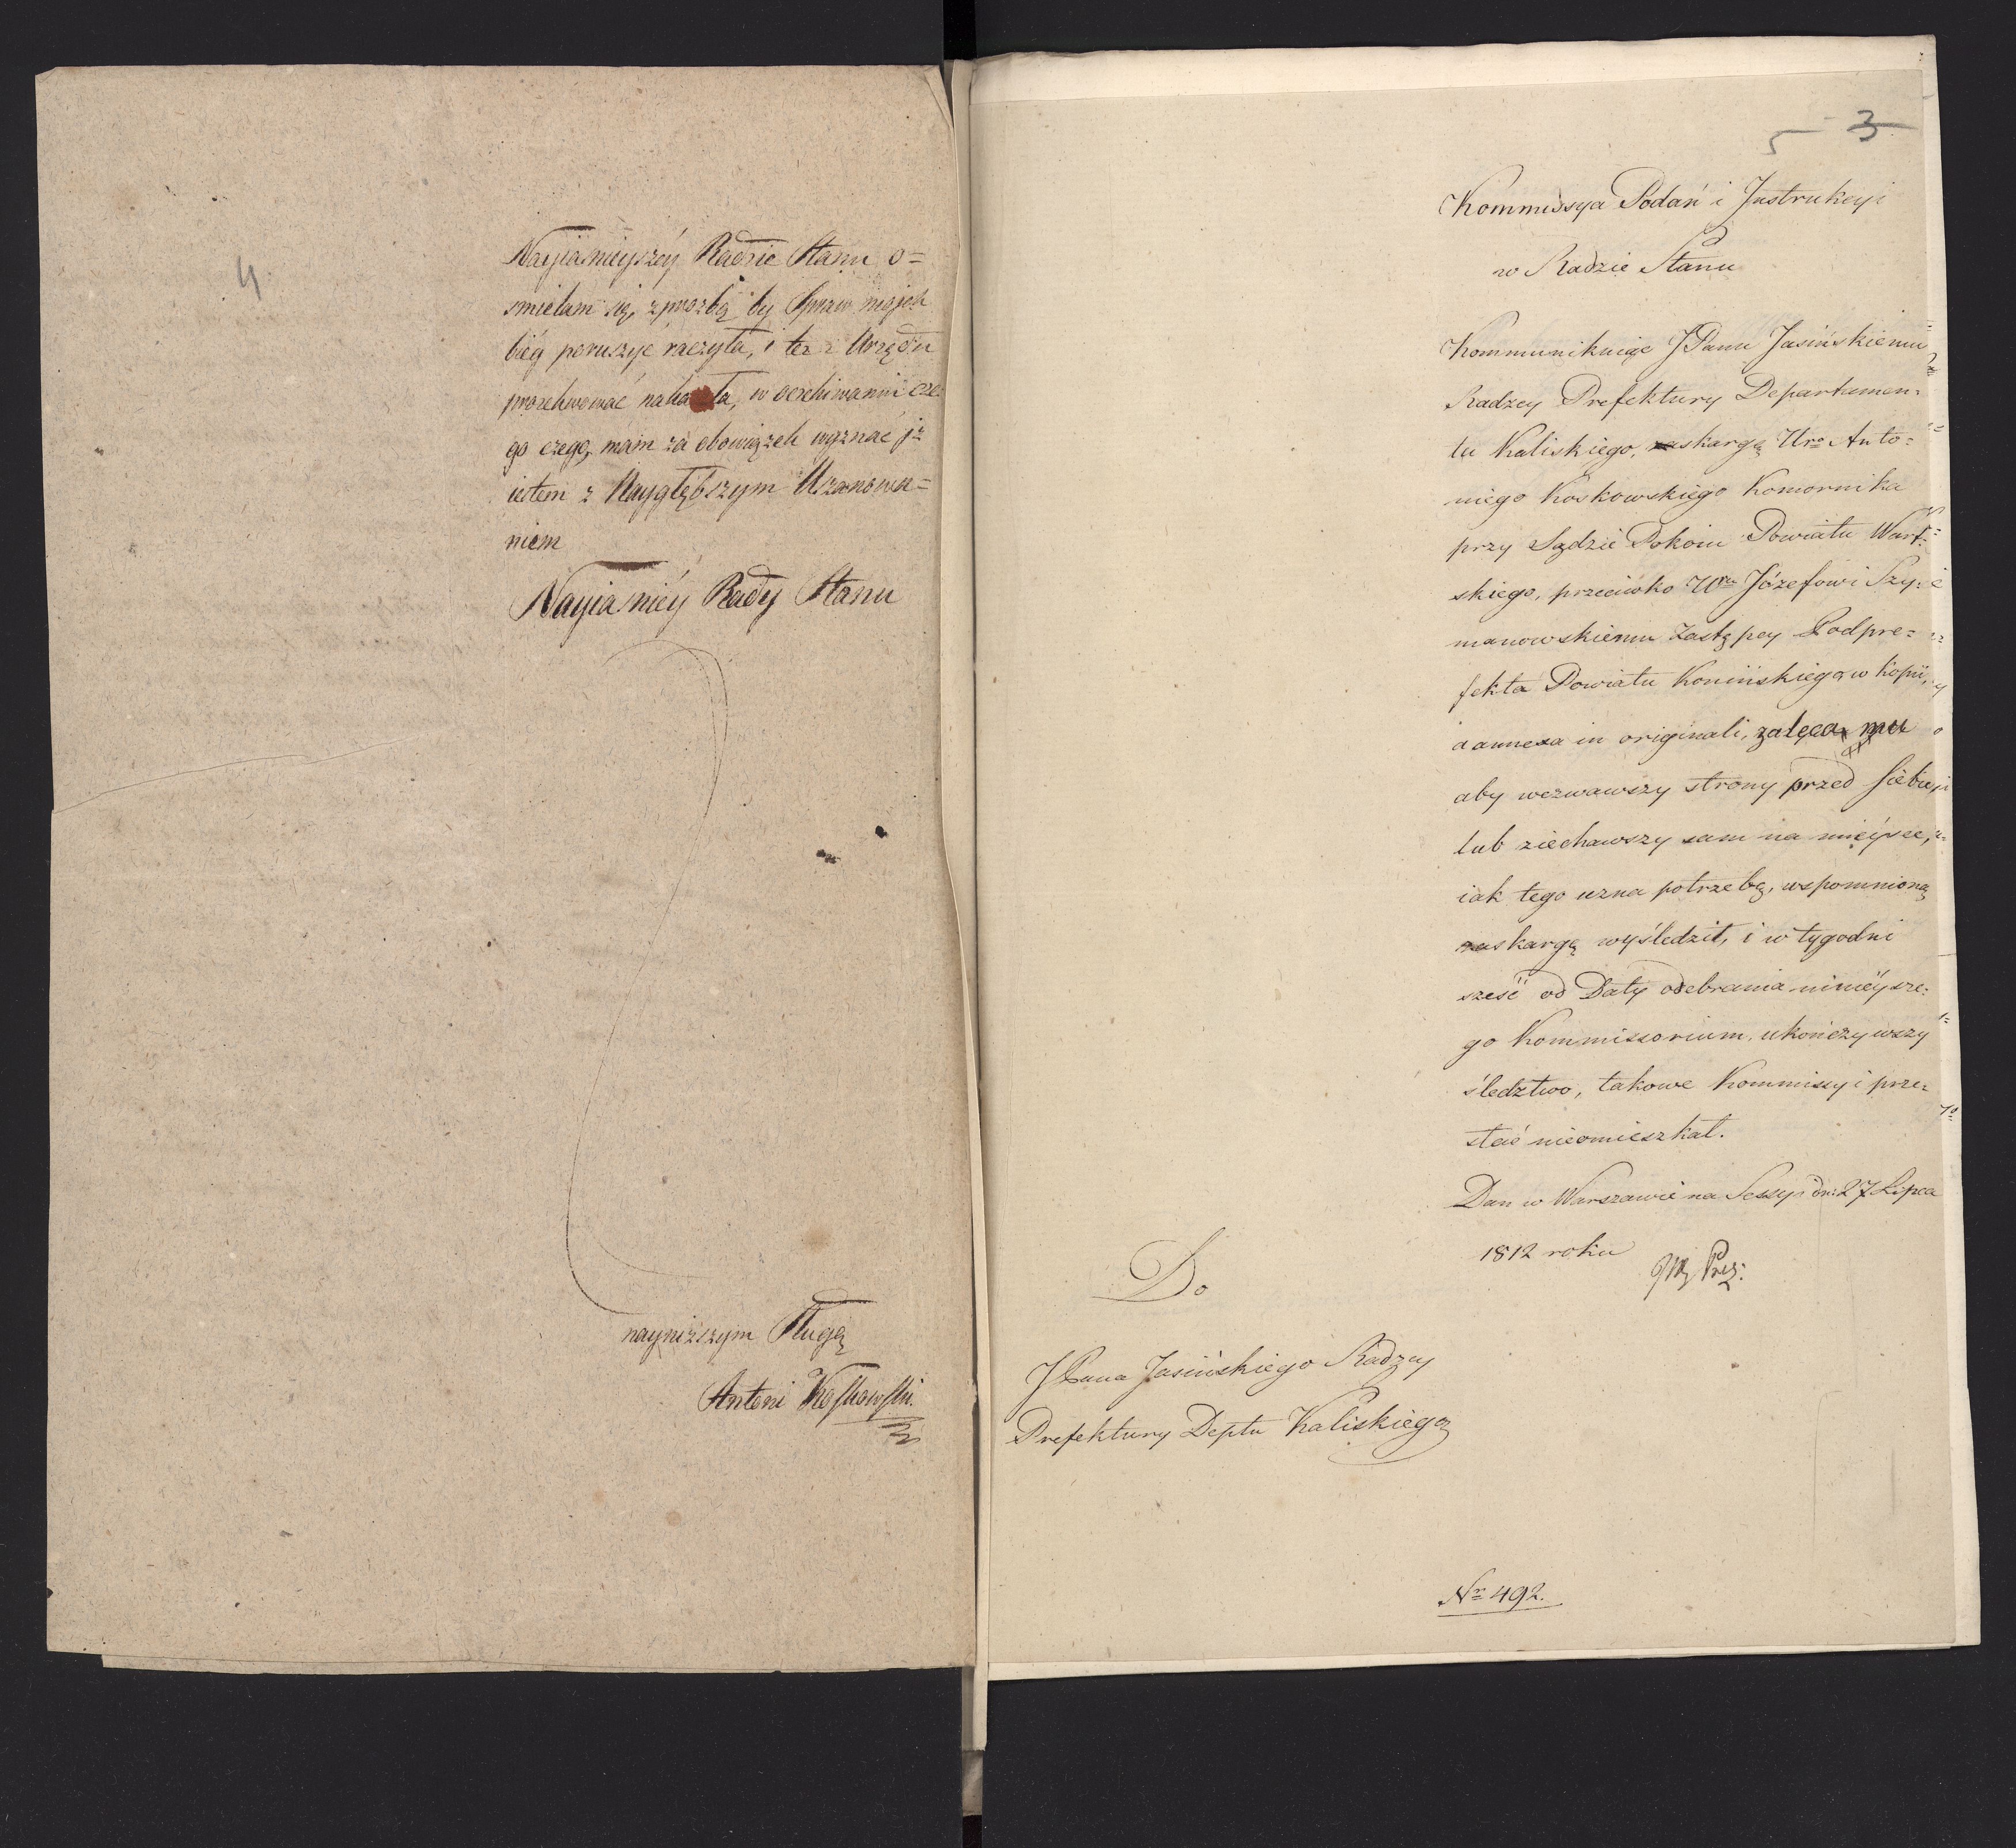 4
Nayiasnieyszéy Radzie Stanu o=
smielam się, z prozbą by Spraw mojch
bieg poruszyć raczyła, i też z Urzędu
prosekwować nakazała, w oczekiwaniu cze
go czego, mam za obowiązek wyznać jż
iestem z Naygłębszym Uszanowa=
niem
Nayiasniéy Rady Stanu
nayniższym Sługą
Antoni Koskowski.
5 3
Kommissya Podań i Instrukcyi
w Radzie Stanu
Kommunikuiąc JPanu Jasińskiemu
Radzcy Prefektury Departamen=
tu Kaliskiego, zaskargę Uro Anto=
niego Koskowskiego Komornika
przy Sądzie Pokoiu Powiatu Wart=
skiego, przeciwko Ur Józefowi Szy=
manowskiemu Zastępcy Podpre=
fekta Powiatu Konińskiego w kopii,
a annexa in originali, zaleca mu
aby wezwawszy strony przed siebie,
lub ziechawszy sam na mieysce,
iak tego uzna potrzebę, wspomnioną
zaskargę wyśledził, i w tygodni
sześć od Daty odebrania ninieysze=
go Kommissorium, ukończywszy
śledztwo, takowe Kommissyi prze=
słać nieomieszkał.
Dan w Warszawie na Sessyi dn: 27 Lipca
1812 roku
Prez:
Do
JPana Jasińskiego Radzcy
Prefektury Deptu Kaliskiego
Nr 492.